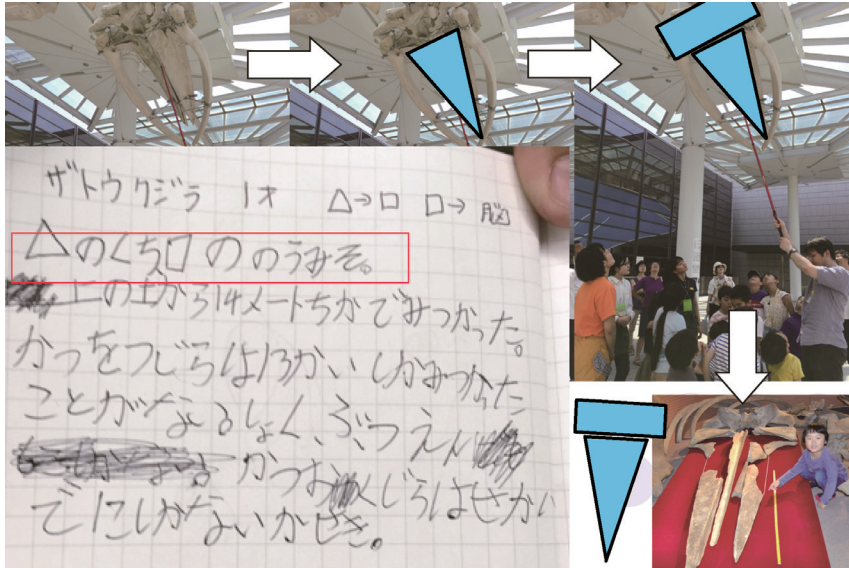 ザトウクジラ 1才 △→口 □→脳
△のくち□ののうみそ。
上の土から14メートちかでみつかった。
かつをつじらは13かいしかみつかった
ことがなるしょくぶつえん
かつおくじらはせかい
でにしかないかせき。